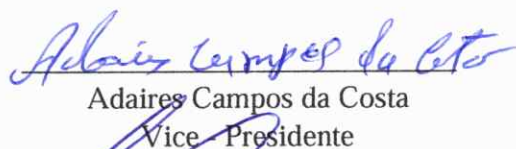 Adaires Campos da Costa
Adaires Campos da Costa
Vice - Presidente